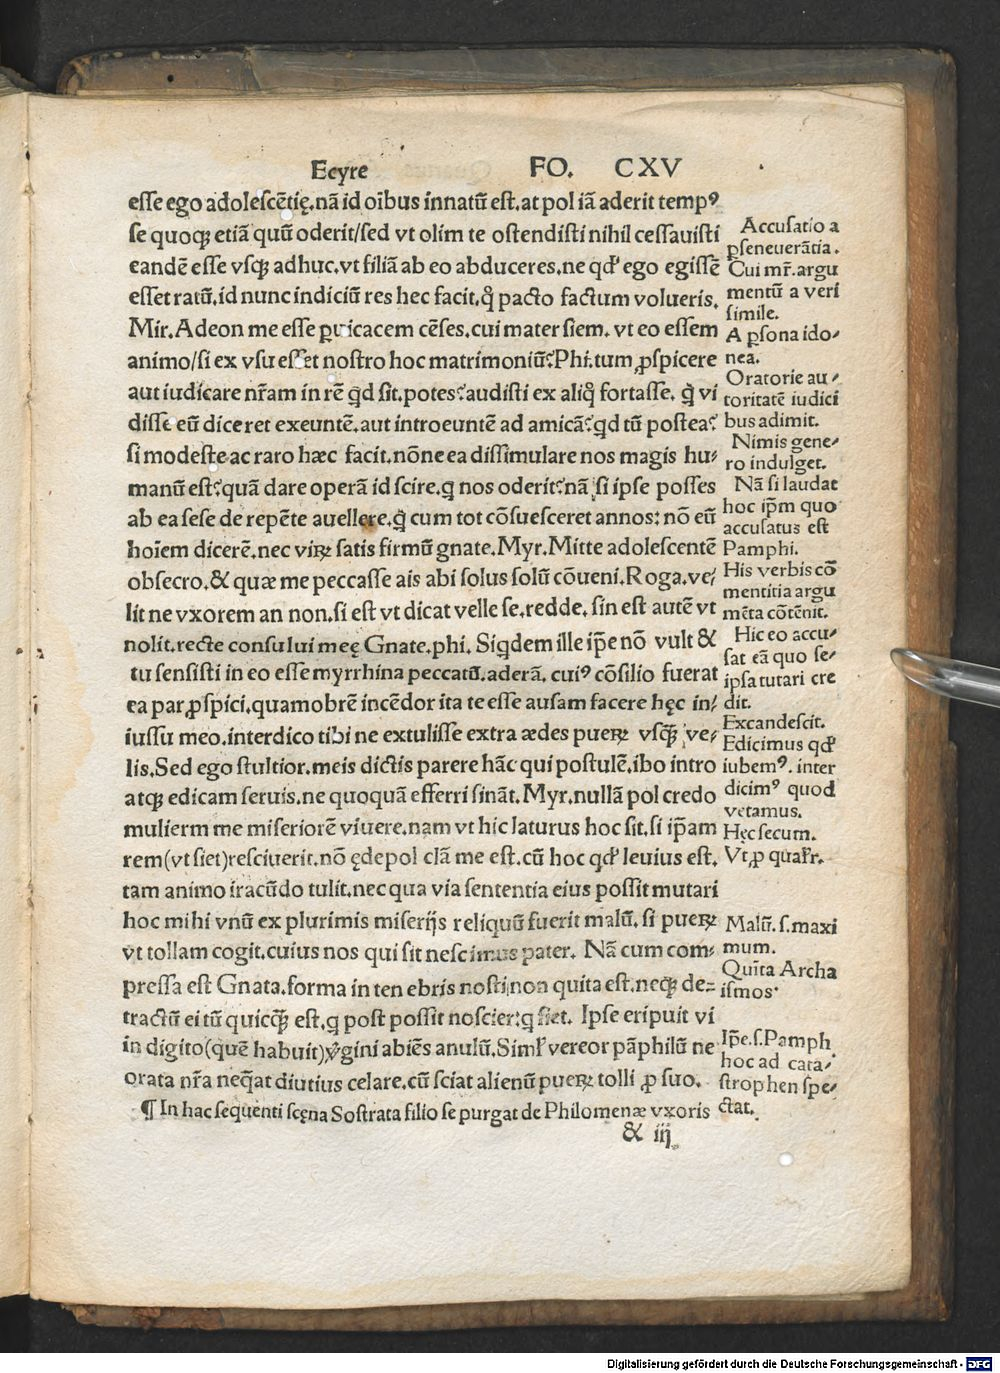 Ecyre FO. CXV
esse ego adolescẽtię.nã id oĩbus innatũ est.at pol iã aderit tempꝰ
se quoqꝫ etiã quũ oderit/sed vt olim te ostendisti nihil cessauisti
eandẽ esse vsqꝫ adhuc.vt filiã ab eo abduceres.ne qđ ego egissẽ
esset ratũ.id nunc indiciũ res hec facit.q̃ pacto factum volueris.
Mir.Adeon me esse ꝑuicacem cẽses.cui mater siem.vt eo essem
animo/si ex vsu esset nostro hoc matrimoniũ?Phi.tum ꝓspicere
aut iudicare nr̃am in rẽ qd sit.potes?audisti ex aliq̃ fortasse.q̃ vi
disse eũ diceret exeuntẽ.aut introeuntẽ ad amicã?qd tũ postea?
si modeste ac raro hæc facit.nõne ea dissimulare nos magis hu⸗
manũ est?quã dare operã id scire.q nos oderit?nã si ipse posses
ab ea sese de repẽte auellere.q̃ cum tot cõsuesceret annos: nõ eũ
hoĩem dicerẽ.nec viꝝ satis firmũ gnate.Myr.Mitte adolescentẽ
obsecro.& quæ me peccasse ais abi solus solũ cõueni.Roga.ve⸗
lit ne vxorem an non.si est vt dicat velle se.redde.sin est autẽ vt
nolit.recte consului meę Gnate.phi. Siqdem ille ip̃e nõ vult &
tu sensisti in eo esse myrrhina peccatũ.aderã. cuiꝰ cõsilio fuerat
ea par ꝓspici.quamobrẽ incẽdor ita te esse ausam facere hęc in⸗
iussu meo.interdico tibi ne extulisse extra ædes pueꝝ vsqꝫ ve⸗
lis.Sed ego stultior.meis dictis parere hãc qui postulẽ.ibo intro
atqꝫ edicam seruis.ne quoquã efferri sinãt.Myr.nullã pol credo
mulierm me miseriorẽ viuere.nam vt hic laturus hoc sit.si ip̃am
rem(vt siet)resciuerit.nõ ędepol clã me est.cũ hoc qđ leuius est.
tam animo iracũdo tulit.nec qua via sententia eius possit mutari
hoc mihi vnũ ex plurimis miserijs reliquũ fuerit malũ.si pueꝝ
vt tollam cogit.cuius nos qui sit nescimus pater. Nã cum com⸗
pressa est Gnata.forma in ten ebris nosti non quita est.neqꝫ de⸗
tractũ ei tũ quicqꝫ est.q post possit noscier:q siet. Ipse eripuit vi
in digito(quẽ habuit)ꝟgini abiẽs anulũ.Siml̃ vereor pãphilũ ne
orata nr̃a neq̃at diutius celare.cũ sciat alienũ pueꝝ tolli ꝓ suo.
¶ In hac sequenti scęna Sostrata filio se purgat de Philomenæ vxoris
& iij
Accusatio a
ꝑseneuerãtia.
Cui mr̃.argu
mentũ a veri
simile.
A ꝑsona ido⸗
nea.
Oratorie au⸗
toritatẽ iudici
bus adimit.
Nimis gene⸗
ro indulget.
Nã si laudat
hoc ip̃m quo
accusatus est
Pamphi.
His verbis cõ
mentitia argu
mẽta cõtẽnit.
Hic eo accu⸗
sat eã quo se⸗
ipsa tutari cre
dit.
Excandescit.
Edicimus qđ
iubemꝰ. inter
dicimꝰ quod
vetamus.
Hęc secum.
Vt ꝓ quaĩr.
Malũ.s.maxi
mum.
Quĩta Archa
ismos·
Ip̃e.s.Pamph
hoc ad cata⸗
strophen spe⸗
ctat.
Digitalisierung gefördert durch die Deutsche Forschungsgemeinschaft - DFG